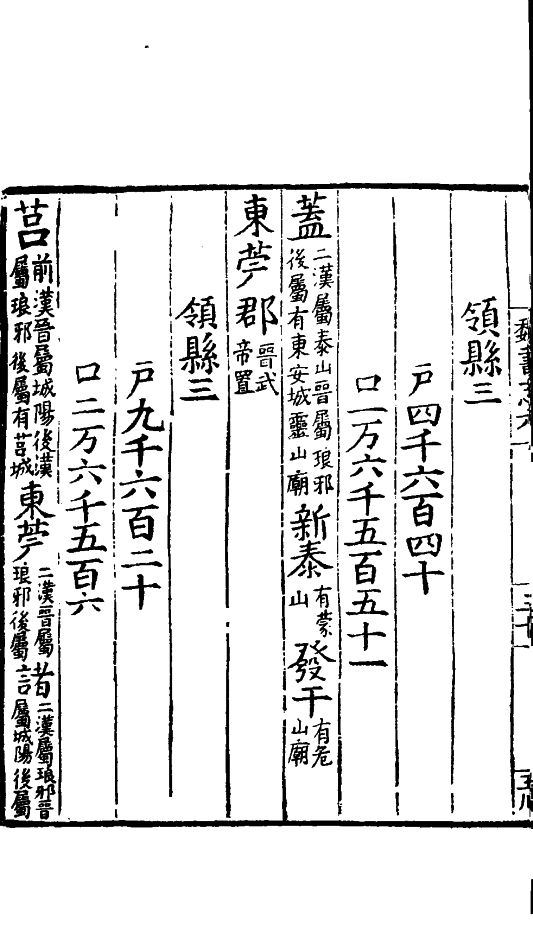 魏書志六
領縣三
戶四千六百四十
口一万六千五百五十一
蓋二漢屬泰山晉屬琅邪後屬有東安城靈山廟新泰有蒙山發干有危山廟
東莞郡晉武帝置
領縣三
戶九千六百二十
口二万六千五百六
莒前漢晉屬城陽後漢屬琅邪後屬有莒城東莞二漢晉屬琅邪後屬諸二漢屬琅邪晉屬城陽後屬